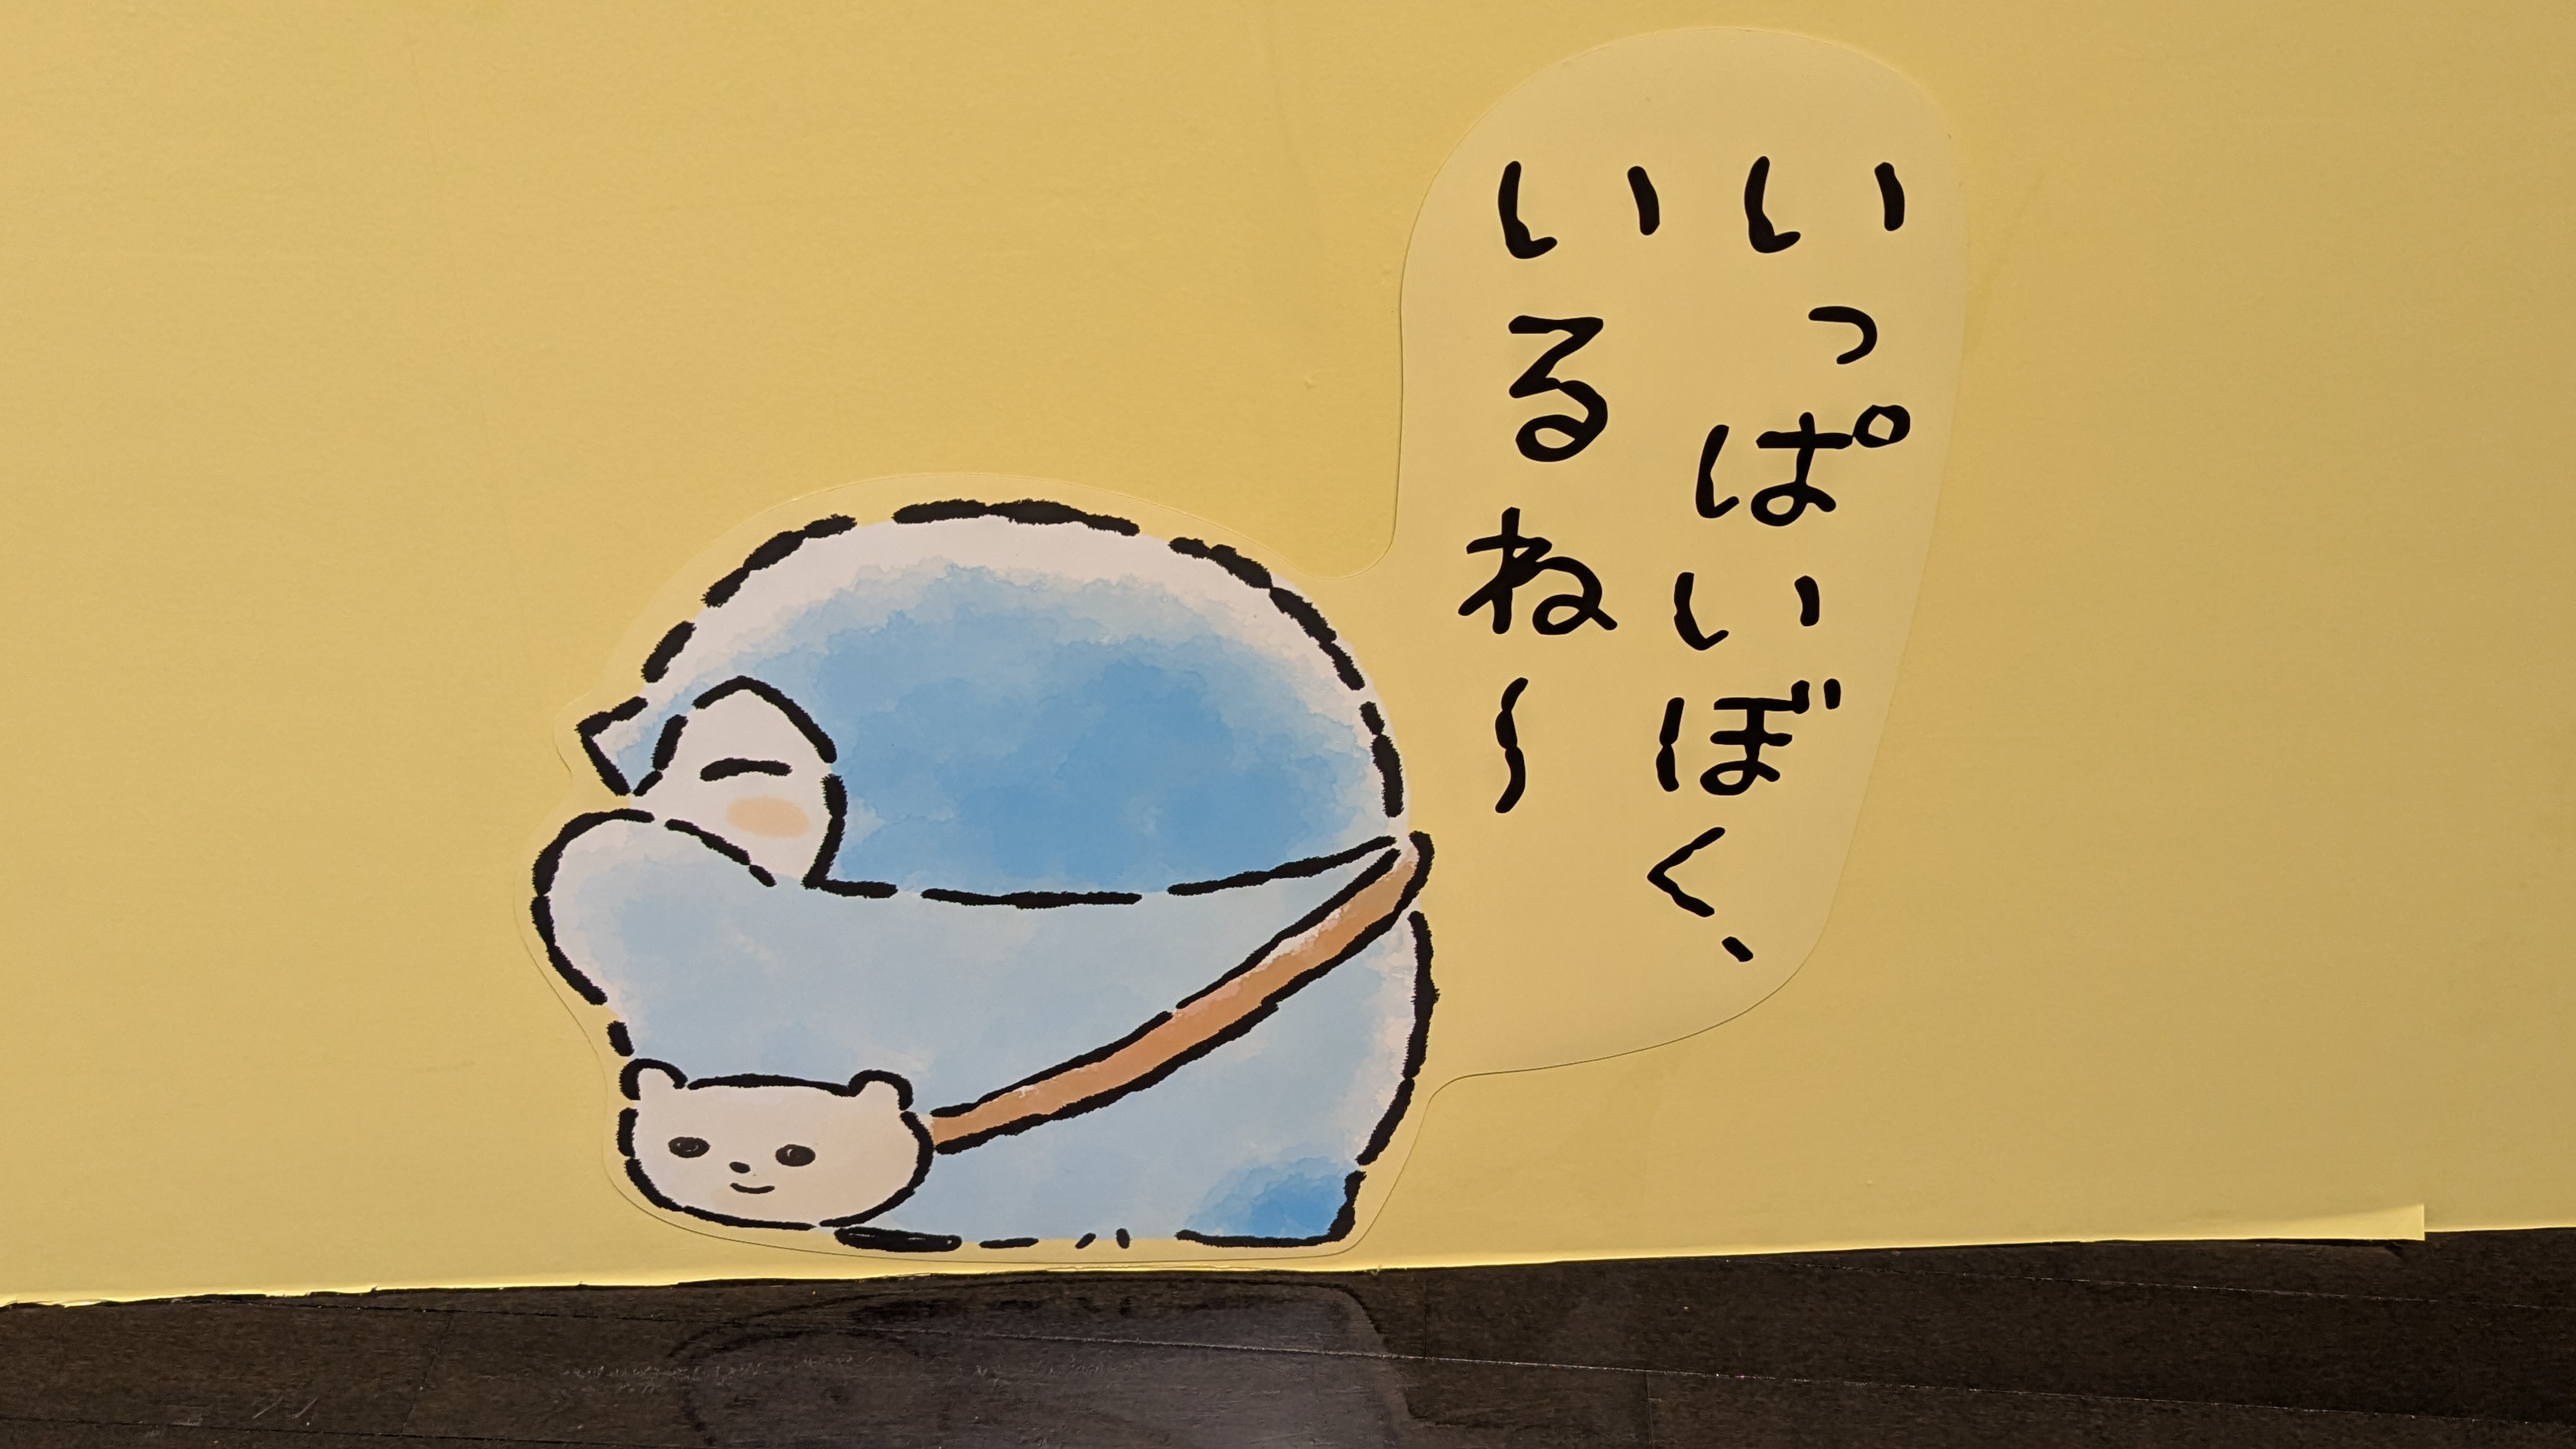 いっぱいぼく、
いるね～